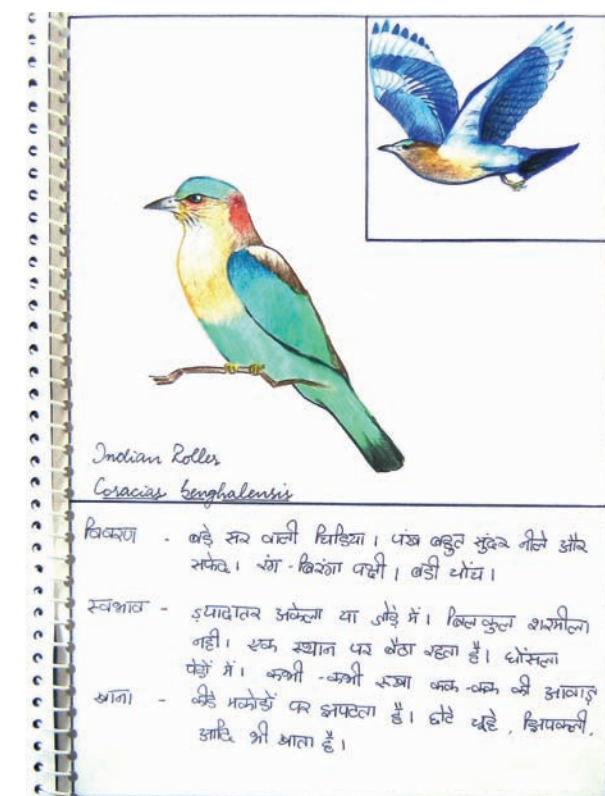 Indian Roller
Coracias benghalensis
विवरण - बड़े सर वाली चिड़िया। पंख बहुत सुंदर नीले और
सफेद। रंग-बिरंगा पक्षी। बडी चोंच।
स्वभाव - ज़्यादातर अकेला या जोड़े में। बिलकुल शरमीला
नही। एक स्थान पर बैठा रहता है। घोंसला
पेड़ों में। कभी-कभी रूखा कक-कक की आवाज़
खाना - कीडे मकोडों पर झपटता है। छोटे चूहे, छिपकली,
आदि भी खाता है।